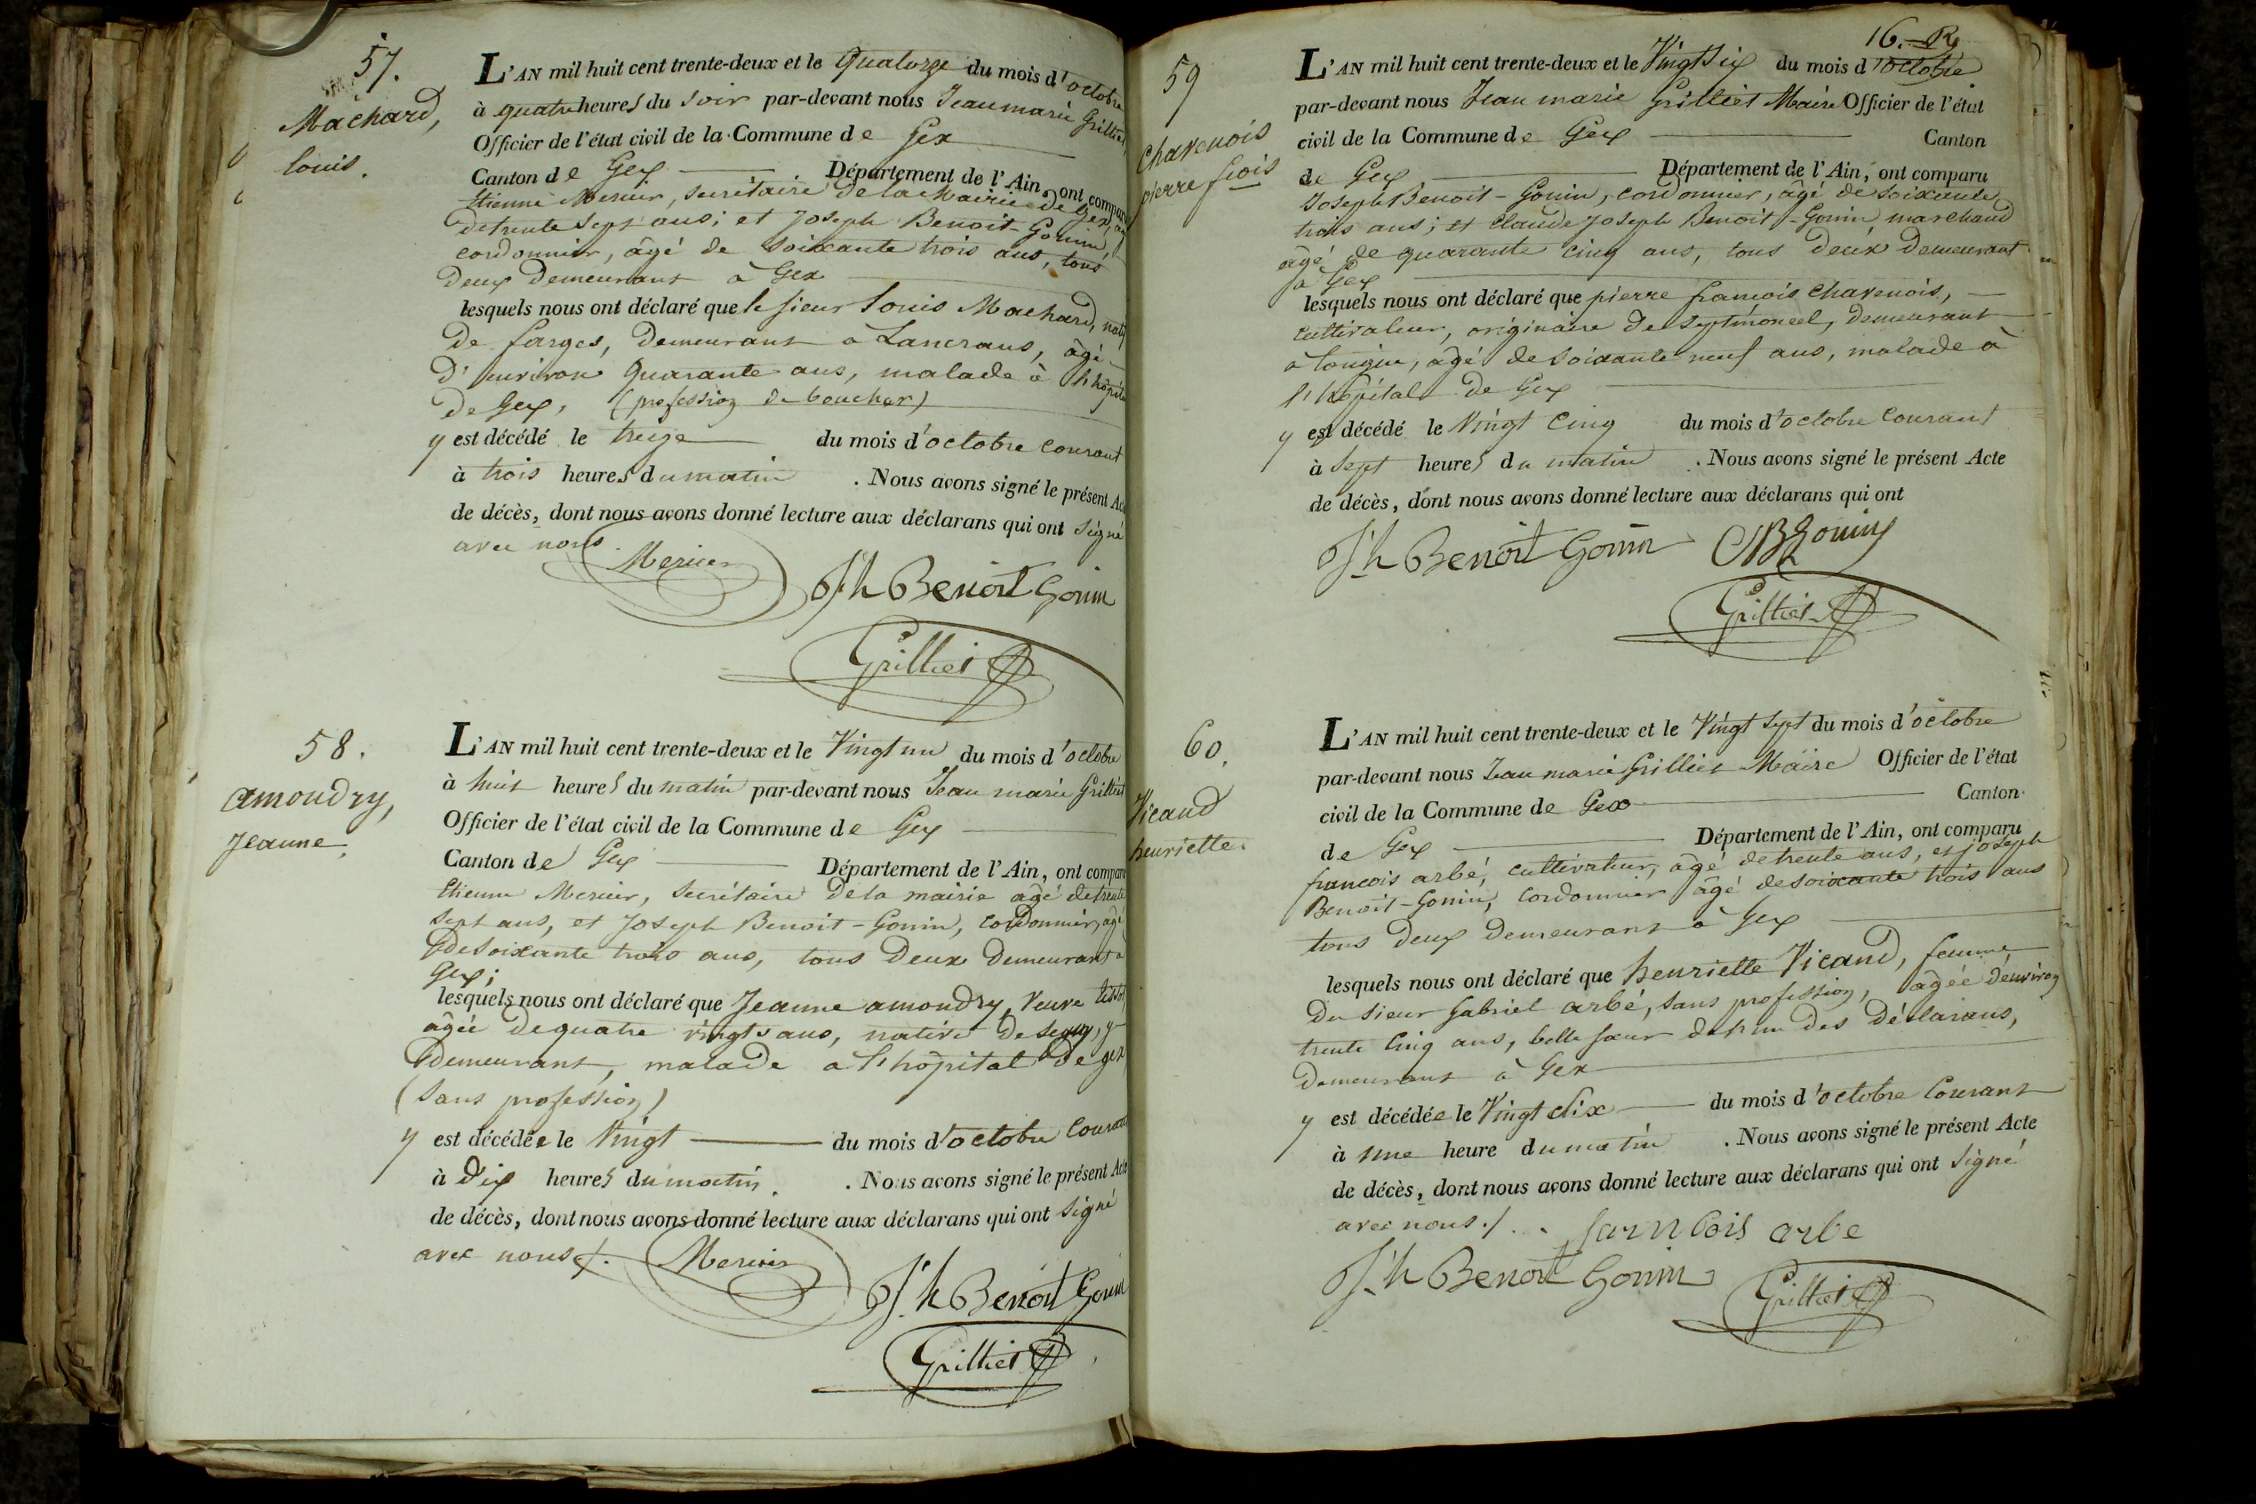 57.
Machard,
louis.
L'AN mil huit cent trente-deux et le quatorze du mois d'octobre
à quatre heures du soir par-devant nous Jean marie Grilliet
Officier de l'état civil de la Commune de Gex
Canton de Gex Département de l'Ain, ont comparu
Etienne Mercier, secrétaire de la Mairie de Gex, âgé
de trente sept ans; et Joseph Benoit-Gonin,
cordonnier, âgé de soixante trois ans, tous
deux demeurant à Gex
lesquels nous ont déclaré que le sieur Louis Machard, natif
de farges, demeurant à Lancrans, âgé
d'environ quarante ans, malade à l'hôpital
de Gex, (profession de boucher)
y est décédé le treize du mois d'octobre courant
à trois heures du matin. Nous avons signé le présent Acte
de décès, dont nous avons donné lecture aux déclarans qui ont signé
avec nous.
Mercier
Jh Benoit Gonin
Grilliet
58.
amoudry,
Jeanne.
L'AN mil huit cent trente-deux et le Vingt un du mois d'octobre
à huit heures du matin par-devant nous Jean marie Grilliet
Officier de l'état civil de la Commune de Gex
Canton de Gex Département de l'Ain, ont comparu
Etienne Mercier, secrétaire de la mairie âgé de trente
sept ans, et Joseph Benoit-Gonin, cordonnier, âgé
de soixante trois ans, tous deux demeurant à
Gex;
lesquels nous ont déclaré que Jeanne amoudry, veuve tissot,
âgée de quatre vingts ans, native de segny, y
demeurant, malade a l'hôpital de gex
(sans profession)
y est décédée le Vingt du mois d'octobre courant
à dix heures du matin. Nous avons signé le présent Acte
de décès, dont nous avons donné lecture aux déclarans qui ont signé
avec nous./.
Mercier
Jh Benoit Gonin
Grilliet
16.
59
Chavenois
pierre fçois
L'AN mil huit cent trente-deux et le Vingt six du mois d'octobre
par-devant nous Jean marie Grilliet Maire Officier de l'état
civil de la Commune de Gex Canton
de Gex Département de l'Ain, ont comparu
Joseph Benoit-Gonin, cordonnier, âgé de soixante
trois ans; et Claude Joseph Benoit-Gonin marchand
âgé de quarante cinq ans, tous deux demeurant
à Gex
lesquels nous ont déclaré que pierre françois chavenois,
cultivateur, originaire de septmoncel, demeurant
à tougin, âgé de soixante neuf ans, malade à
l'hôpital de Gex
y est décédé le Vingt Cinq du mois d'octobre Courant
à sept heures du matin. Nous avons signé le présent Acte
de décès, dont nous avons donné lecture aux déclarans qui ont
Jh Benoit Gonin
Grilliet
60.
Vicand
henriette.
L'AN mil huit cent trente-deux et le Vingt sept du mois d'octobre
par-devant nous Jean marie Grilliet Maire Officier de l'état
civil de la Commune de Gex Canton
de Gex Département de l'Ain, ont comparu
francois arbé, cultivateur, âgé de trente ans, et joseph
Benoit-Gonin, cordonnier âgé de soixante trois ans
tous deux demeurant à Gex
lesquels nous ont déclaré que henriette Vicand, femme
du sieur Gabriel arbé, sans profession, âgée d'environ
trente Cinq ans, belle sœur de l'un des déclarans,
demeurant à Gex
y est décédée le Vingt Six du mois d'octobre Courant
à une heure du matin. Nous avons signé le présent Acte
de décès, dont nous avons donné lecture aux déclarans qui ont signé
avec nous./.
farncois arbe
Jh Benoit Gonin
Grilliet